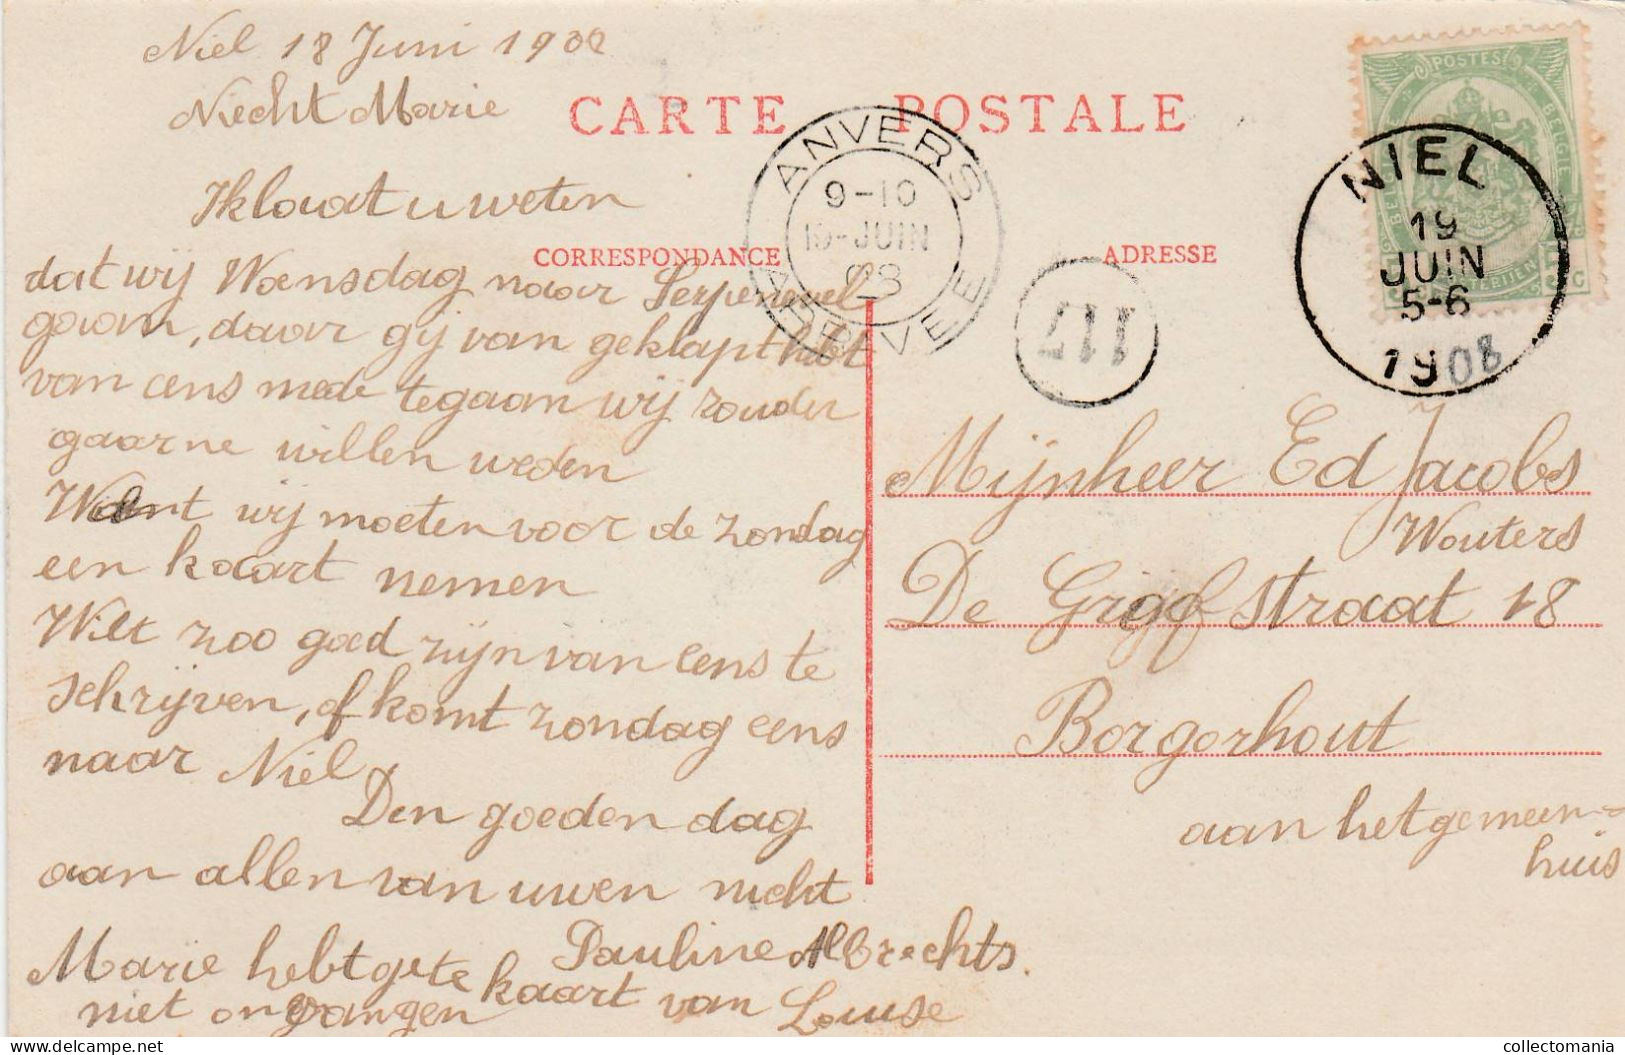 Niel 18 Juni 190
Niecht Marie
CARTE POSTALE
Ik laat u weten
CORRESPONDANCE
ADRESSE
dat wij Woensdag naar
gaan, daar gij van geklapt hebt
van eens mede tegaan wij zouder
gaarne willen weden
Want wij moeten voor de zondag
een kaart nemen
Wilt zoo goed zijn van eens te
schrijven, of komt zondag eens
naar Niel
Den goeden dag
aan allen van uwen nicht
Pauline Albrechts.
Marie hebt gete kaart van Louise
niet ongvangen
ANVERS
9-10
19-JUIN
08
ARRIVEE
117
POSTES
BELGIQUE
BELGIE
5 C 5 C
NIEL
19
JUIN
5-6
1908
Mijnheer Ed Jacobs
Wouters
De straat 18
Borgorhout
aan het gemeen=
huis
collectomania